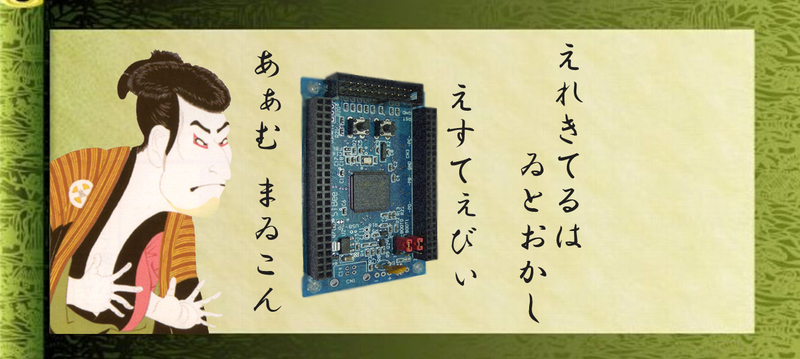 えれきてるは
ゐとおかし
えすてぇびぃ
あぁむ まゐこん